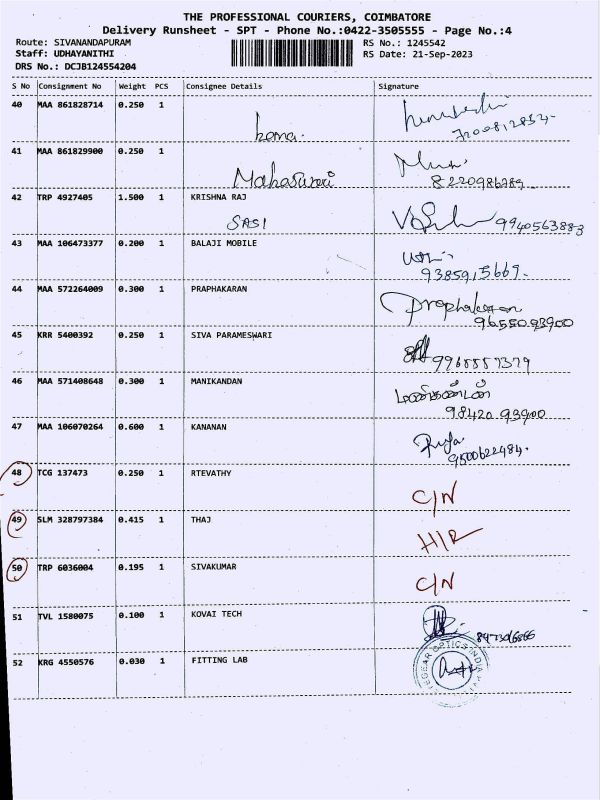 THE PROFESSIONAL COURIERS, COIMBATORE
Delivery Runsheet - SPT - Phone No.:0422-3505555 - Page No.:4
Route: SIVANANDAPURAM RS No.: 1245542
Staff: UDHAYANITHI RS Date: 21-Sep-2023
DRS No.: DCJB124554204
S No Consignment No Weight PCS Consignee Details Signature
40 MAA 861828714 0.250 1
hema.
41 MAA 861829900 0.250 1
8220986789
42 TRP 4927405 1.500 1 KRISHNA RAJ
SASI 9940563883
43 MAA 106473377 0.200 1 BALAJI MOBILE
9385915669.
44 MAA 572264009 0.300 1 PRAPHAKARAN
Praphakaran
96550 93900
45 KRR 5400392 0.250 1 SIVA PARAMESWARI
46 MAA 571408648 0.300 1 MANIKANDAN
மணிகண்டன்
98420 93900
47 MAA 106070264 0.600 1 KANANAN
9500622484.
48 TCG 137473 0.250 1 RTEVATHY
C/N
49 SLM 328797384 0.415 1 THAJ
H/R
50 TRP 6036004 0.195 1 SIVAKUMAR
C/N
51 TVL 1580075 0.100 1 KOVAI TECH
52 KRG 4550576 0.030 1 FITTING LAB